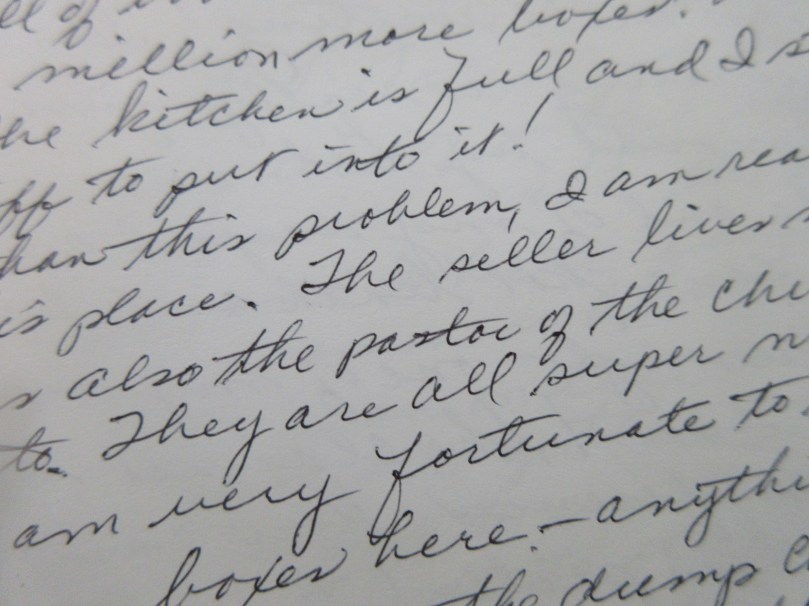 million more boxes.
he kitchen is full and I s
ff to put into it!
han this problem, I am rea
is place. The seller lives
s also the pastor of the chu
to. They are all super n
am very fortunate to
boxes here. - anythi
the dump